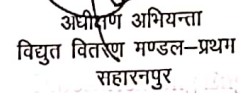 अधीक्षण अभियन्ता
विद्युत वितरण मण्डल–प्रथम
सहारनपुर